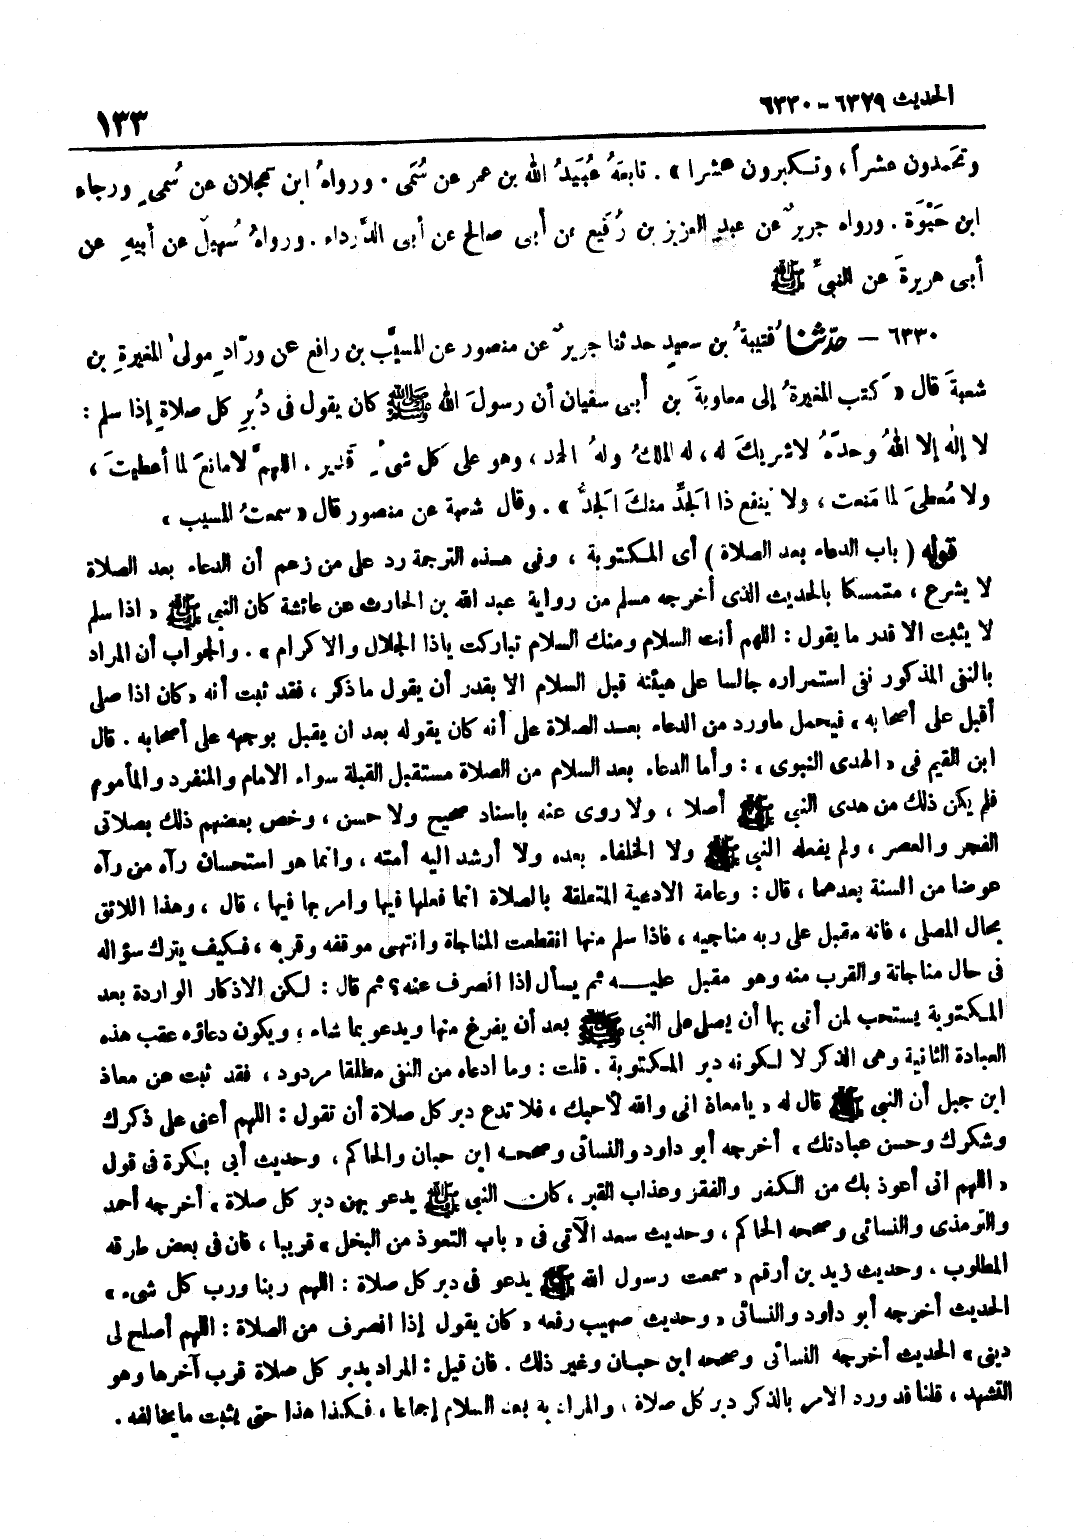 الحديث ٦٣٢٩ - ٦٣٣٠
١٣٣
وتحمدون عشراً ، وتكبرون عشرا » . تابعَهُ عُبَيدُ الله بن عمر عن سُمَى . ورواهُ ابن عجلان عن سُمىٍ ورجاء
ابن حَيْوَة . ورواه جريرٌ عن عبدِ العزيز بن رُفَيع عن أبى صالح عن أبى الدَّرداء . ورواهُ سُهيل عن أبيهِ عن
أبى هريرةَ عن النبىِّ ﷺ
٦٣٣٠ — حدّثنا قُتيبةُ بن سعيدٍ حدثنا جريرٌ عن منصور عن المسيَّب بن رافع عن ورّادٍ مولى المغيرةِ بن
شعبةَ قال « كتب المغيرةُ إلى معاويةَ بن أبى سفيان أن رسولَ الله ﷺ كان يقول فى دُبرِ كل صلاةٍ إذا سلم :
لا إله إلا اللهُ وحدَهُ لاشريكَ له ، له الملكُ ولهُ الحمد ، وهو على كل شىءٍ قدير . اللهمَّ لامانعَ لما أعطيتَ ،
ولا مُعطىَ لما مَنعت ، ولا يَنفع ذا الجَدِّ منكَ الجَدُّ » . وقال شعبة عن منصور قال « سمعتُ المسيب »
قوله ( باب الدعاء بعد الصلاة ) أى المكتوبة ، وفى هذه الترجمة رد على من زعم أن الدعاء بعد الصلاة
لا يشرع ، متمسكا بالحديث الذى أخرجه مسلم من رواية عبد الله بن الحارث عن عائشة كان النبى ﷺ « اذا سلم
لا يثبت الا قدر ما يقول : اللهم أنت السلام ومنك السلام تباركت ياذا الجلال والاكرام » . والجواب أن المراد
بالنفى المذكور نفى استمراره جالسا على هيئته قبل السلام الا بقدر أن يقول ما ذكر ، فقد ثبت أنه « كان اذا صلى
أقبل على أصحابه » فيحمل ماورد من الدعاء بعد الصلاة على أنه كان يقوله بعد ان يقبل بوجهه على أصحابه . قال
ابن القيم فى « الهدى النبوى » : وأما الدعاء بعد السلام من الصلاة مستقبل القبلة سواء الامام والمنفرد والمأموم
فلم يكن ذلك من هدى النبى ﷺ أصلا ، ولا روى عنه باسناد صحيح ولا حسن ، وخص بعضهم ذلك بصلاتى
الفجر والعصر ، ولم يفعله النبى ﷺ ولا الخلفاء بعده ولا أرشد اليه أمته ، وانما هو استحسان رآه من رآه
عوضا من السنة بعدهما ، قال : وعامة الادعية المتعلقة بالصلاة انما فعلها فيها وامر بها فيها ، قال ، وهذا اللائق
بحال المصلى ، فانه مقبل على ربه مناجيه ، فاذا سلم منها انقطعت المناجاة وانتهى موقفه وقربه ، فكيف يترك سؤاله
فى حال مناجاتة والقرب منه وهو مقبل عليه ثم يسأل اذا انصرف عنه ؟ ثم قال : لكن الاذكار الواردة بعد
المكتوبة يستحب لمن أتى بها أن يصلى على النبى ﷺ بعد أن يفرغ منها ويدعو بما شاء ، ويكون دعاؤه عقب هذه
العبادة الثانية وهى الذكر لا لكونه دبر المكتوبة . قلت : وما ادعاه من النفى مطلقا مردود ، فقد ثبت عن معاذ
ابن جبل أن النبى ﷺ قال له « يامعاذ انى والله لأحبك ، فلا تدع دبر كل صلاة أن تقول : اللهم أعنى على ذكرك
وشكرك وحسن عبادتك » أخرجه أبو داود والنسائى وصححه ابن حبان والحاكم ، وحديث أبى بكرة فى قول
« اللهم انى أعوذ بك من الكفر والفقر وعذاب القبر ، كان النبى ﷺ يدعو بهن دبر كل صلاة » أخرجه أحمد
والترمذى والنسائى وصححه الحاكم ، وحديث سعد الآتى فى « باب التعوذ من البخل » قريبا ، فان فى بعض طرقه
المطلوب . وحديث زيد بن أرقم « سمعت رسول الله ﷺ يدعو فى دبر كل صلاة : اللهم ربنا ورب كل شىء »
الحديث أخرجه أبو داود والنسائى « وحديث صهيب رفعه « كان يقول إذا انصرف من الصلاة : اللهم أصلح لى
دينى » الحديث أخرجه النسائى وصححه ابن حبان وغير ذلك . فان قيل : المراد بدبر كل صلاة قرب آخرها وهو
التشهد ، قلنا قد ورد الامر بالذكر دبر كل صلاة ، والمراد به بعد السلام إجماعا ، فكذا هذا حتى يثبت ما يخالفه .